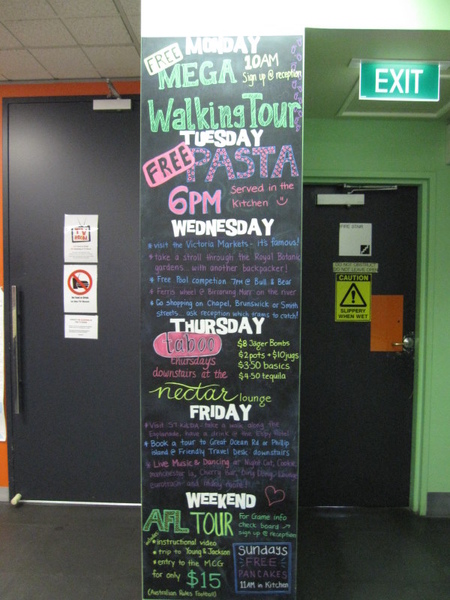 MONDAY
FREE
MEGA
10AM
Sign up @ reception
Walking Tour
TUESDAY
FREE
PASTA
6PM
Served in the
Kitchen
WEDNESDAY
* visit the Victoria Markets - it's famous!
* take a stroll through the Royal Botanic
gardens with another backpacker!
* Free Pool competion 7pm @ Bull & Bear
* Ferris wheel @ Birrarung Marr on the river
* Go shopping on Chapel, Brunswick or Smith
streets. ask reception which trams to catch!
THURSDAY
taboo
thursdays
downstairs at the
$8 Jager Bombs
2 pots + $10 jugs
$3.50 basics
$4.50 tequila
nectar lounge
FRIDAY
* Visit St Kilda - take a walk along the
Esplanade, have a drink @ the Espy Hotel
* Book a tour to Great Ocean Rd or Phillip
island @ Friendly Travel Desk downstairs
* Live Music & Dancing at Night Cat, Cookie,
Cherry Bar,
WEEKEND
AFL TOUR
* instructional video
* trip to Young & Jackson
* entry to the MCG
for only $15
(Australian Rules Football)
For Game info
check board
sign up @ reception
Sundays
FREE
PANCAKES
11AM in Kitchen
EXIT
FIRE STAIR
DO NOT OBSTRUCT
CAUTION
SLIPPERY
WHEN WET